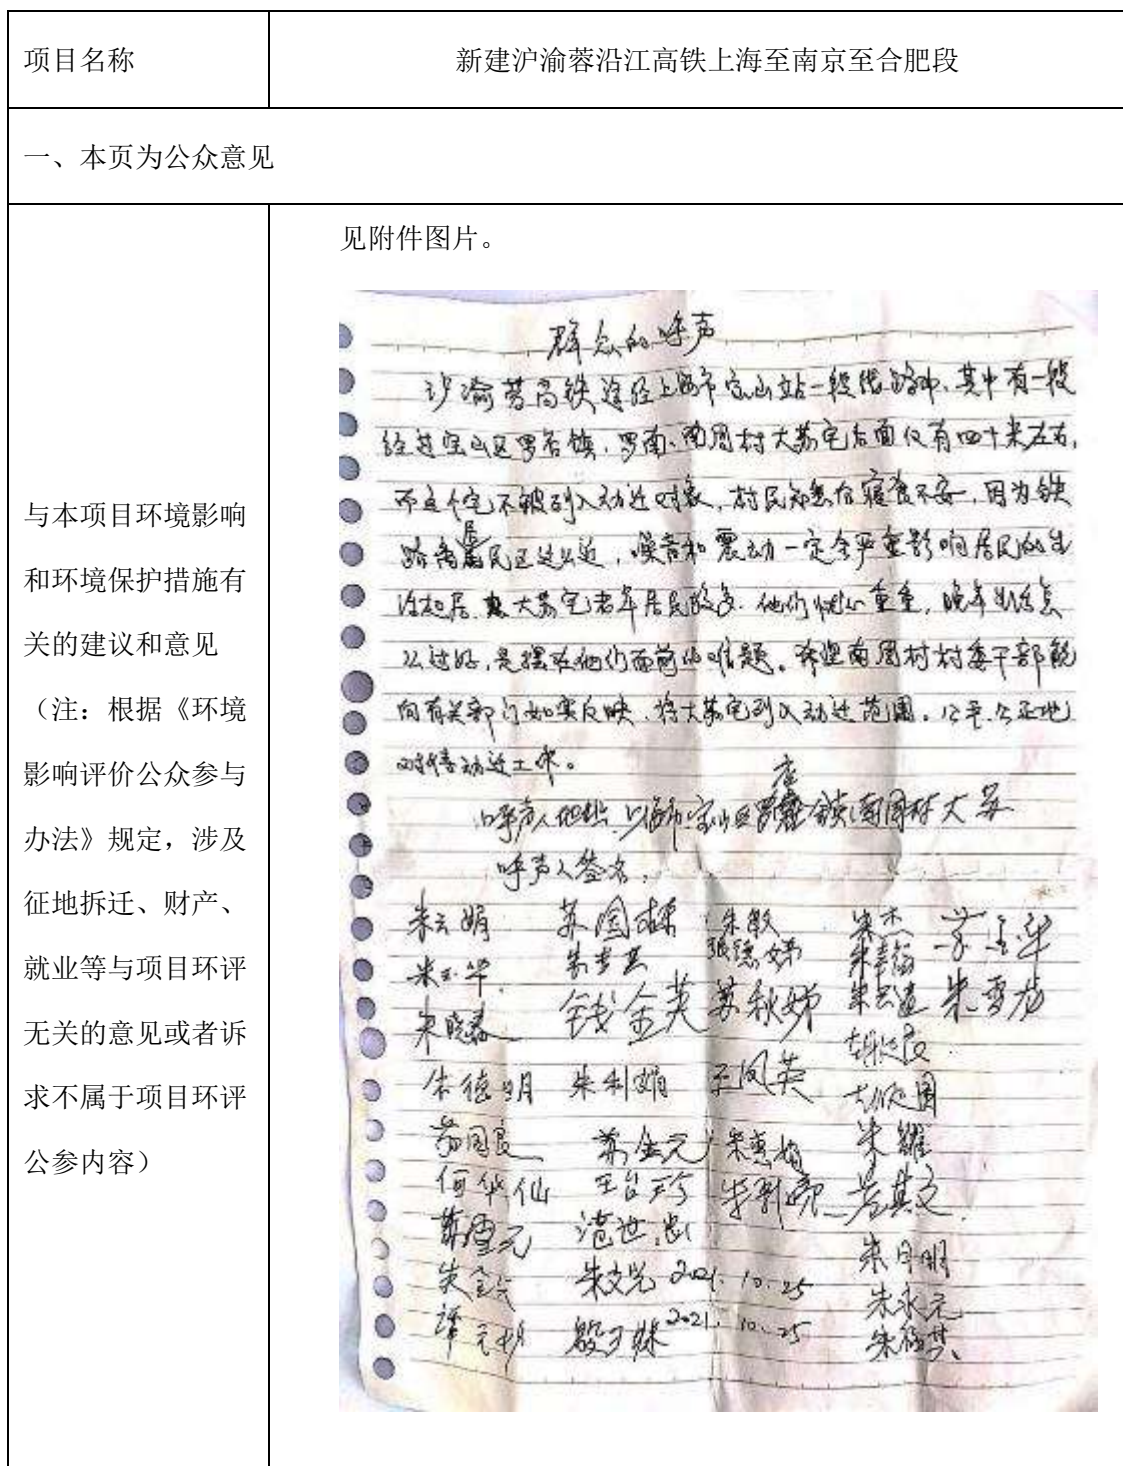 项目名称
新建沪渝蓉沿江高铁上海至南京至合肥段
一、本页为公众意见
与本项目环境影响
和环境保护措施有
关的建议和意见
（注：根据《环境
影响评价公众参与
办法》规定，涉及
征地拆迁、财产、
就业等与项目环评
无关的意见或者诉
求不属于项目环评
公参内容）
见附件图片。
群众的呼声
沪渝蓉高铁途径上海市宝山站一段线路中、其中有一段
经过宝山区罗店镇，罗南、南周村大苏宅后面仅有四十米左右，
而这个宅不被列入动迁对象，村民知悉后寝食不安，因为铁
路离居民区这么近，噪音和震动一定会严重影响居民的生
活起居。大苏宅老年居民较多，他们忧心重重，晚年生活怎
么过好，是摆在他们面前的难题。希望南周村村委干部能
向有关部门如实反映、将大苏宅列入动迁范围。公平、公正地
对待动迁工作。
呼声人地址 上海市宝山区罗店镇南周村大苏
呼声人签名：
朱云娟 苏国栋 朱敏 朱杰
张德娣
钱金英 苏秋娣 朱雪芳
朱晓春
朱德明 朱利娟 王凤英
苏国良 苏金元 朱惠娟 朱耀
何华仙 王台珍
苏雪元
朱文光 2021.10.25 朱月明
2021.10.25 朱永元